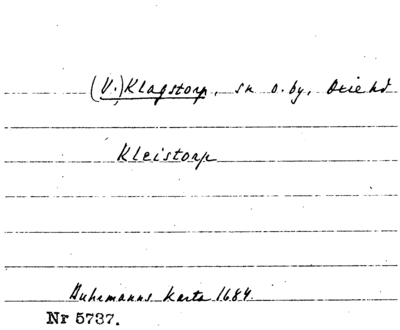 (V.) Klagstorp, sn o. by, Oxie hd
Kleistorp
Buhrmanns karta 1684.
Nr 5737.